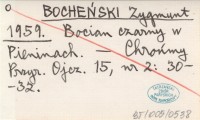 BOCHEŃSKI Zygmunt
1959. Bocian czarny w
Pieninach. — Chrońmy
Przyr. Ojcz. 15, nr 2: 30-
-32.
BJ/00D/0538